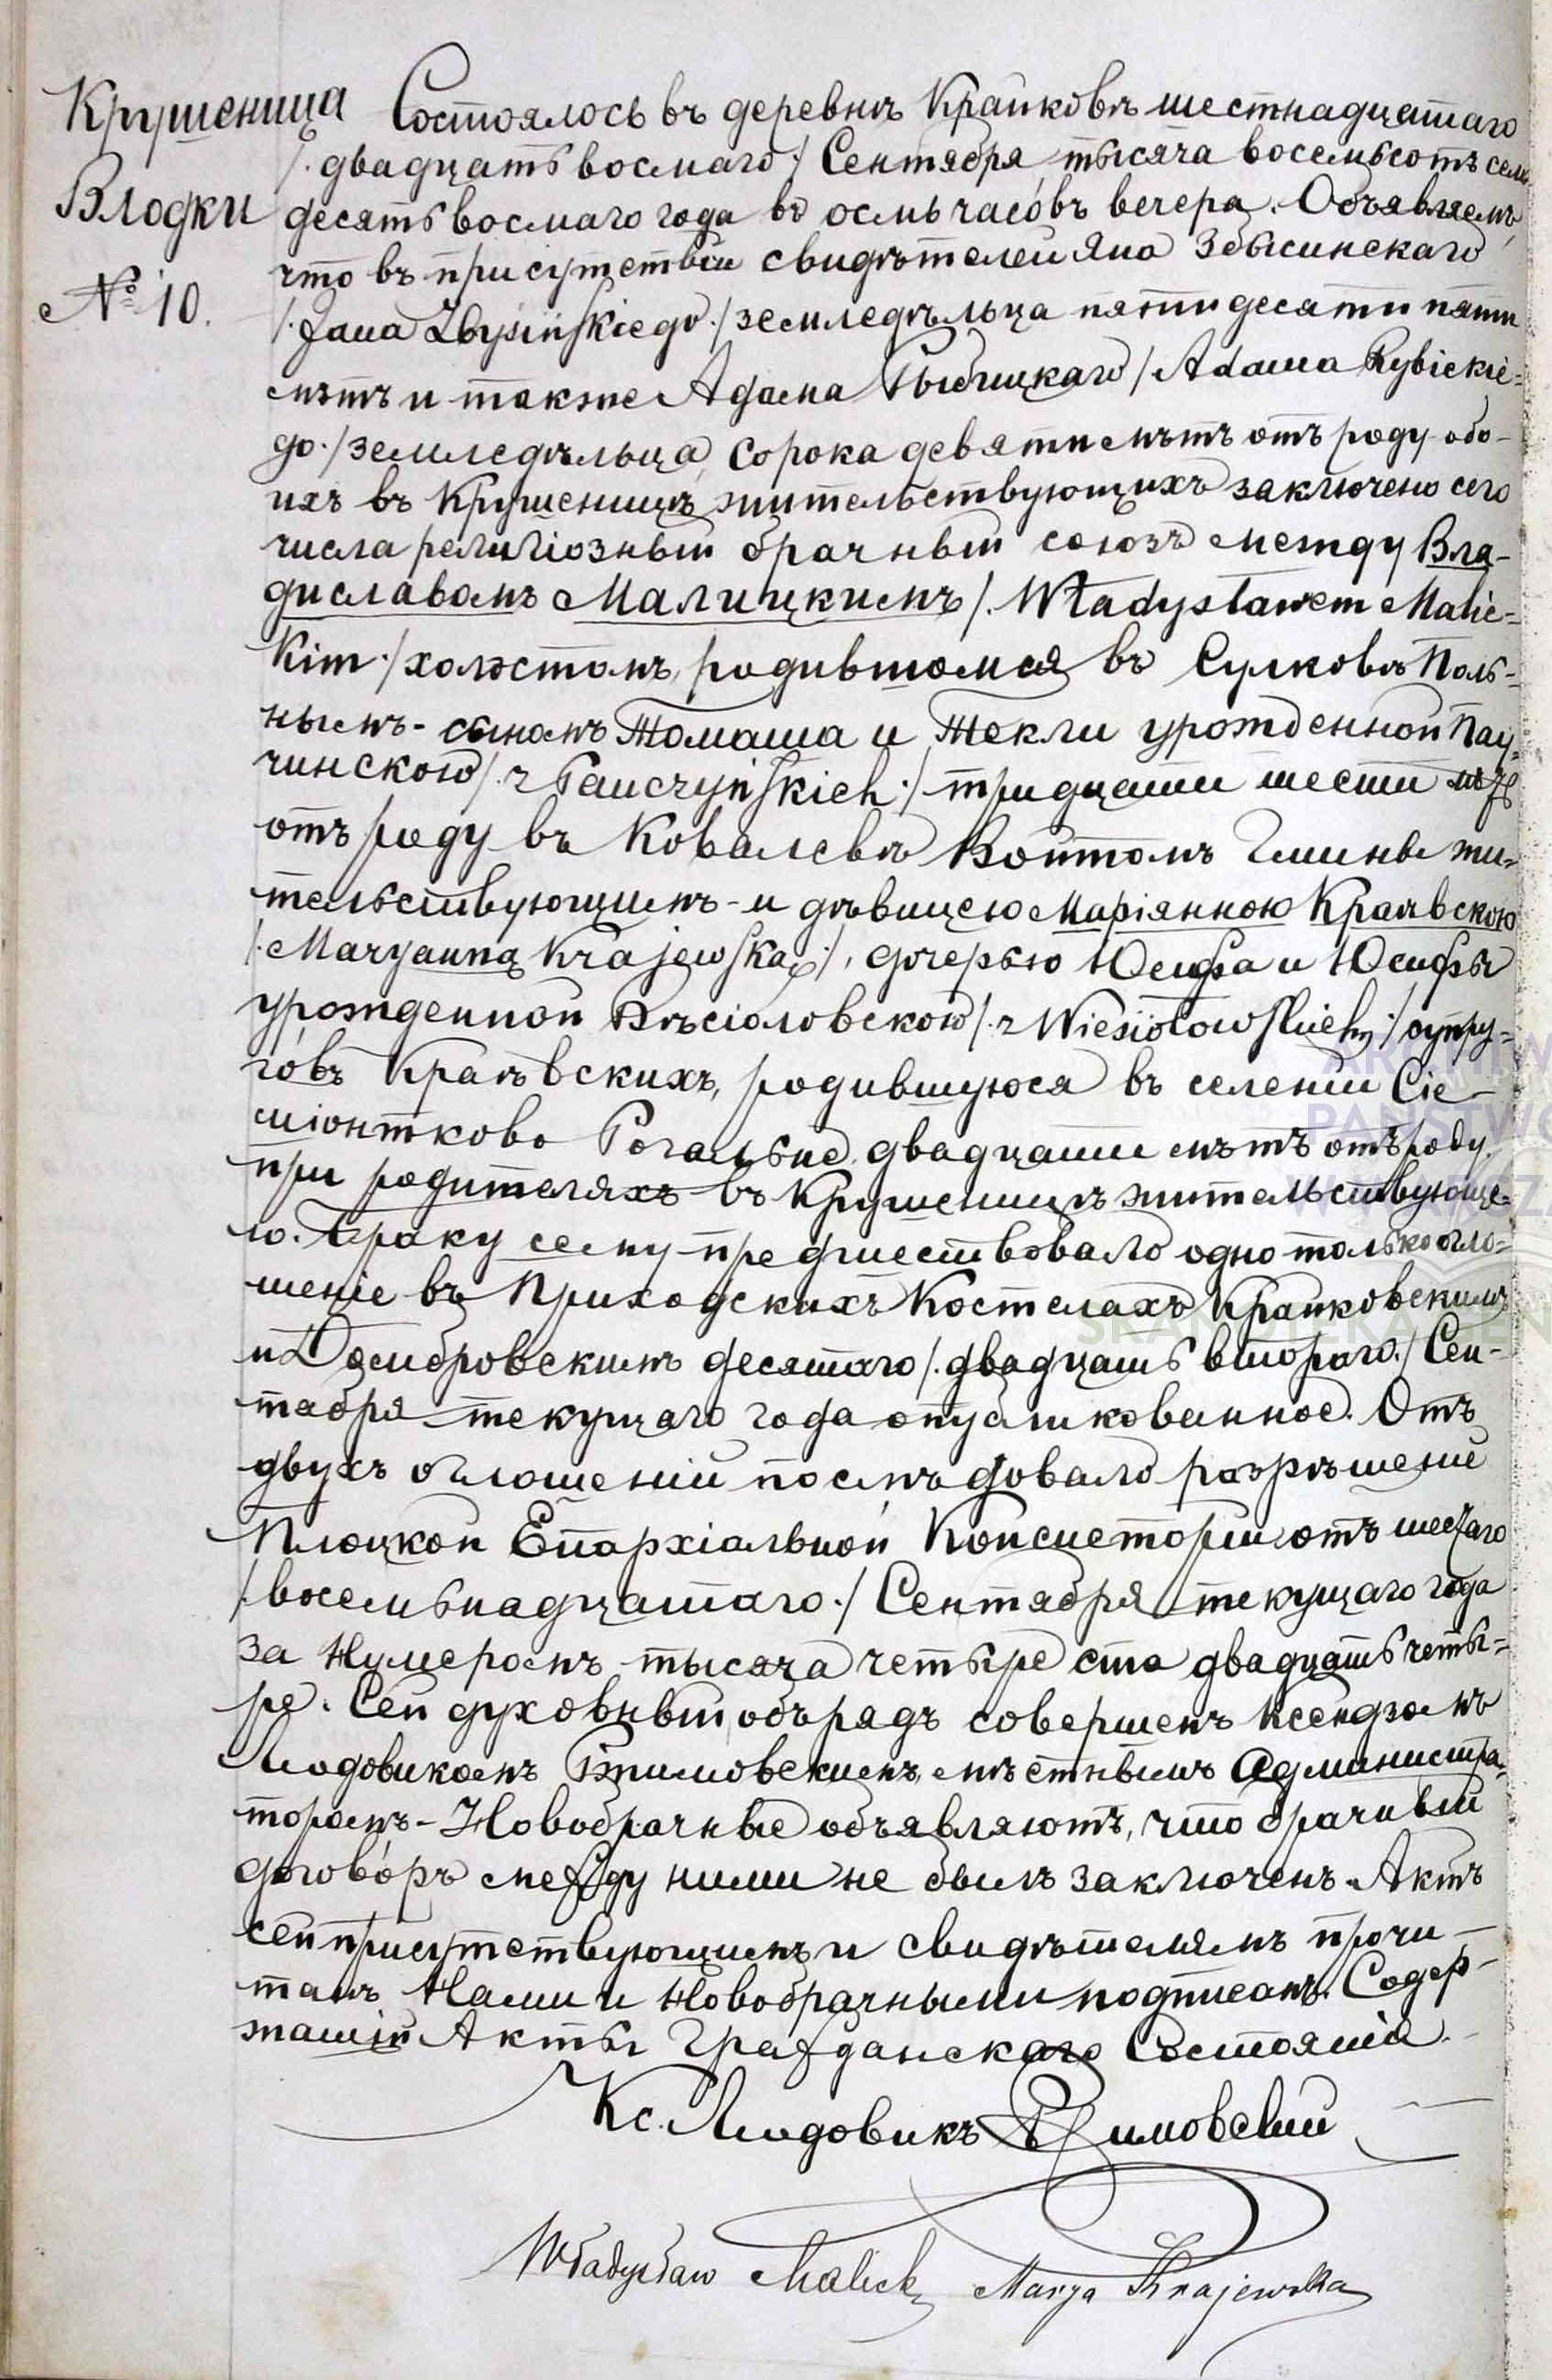 Крушеница
Влодки
№ 10.
Состоялось въ деревнѣ Крайковѣ шестнадцатаго
/. двадцать восмаго ./ Сентября тысяча восемьсотъ семь
десятъ восмаго года въ осмь часовъ вечера. Объявляемъ,
что въ присутствіи свидѣтелей Яна Збысинскаго
/. Jana Zbysińskiego ./ земледѣльца пятидесяти пяти
лѣтъ и также Адама Рыбицкаго / Adama Rybickie=
go ./ земледѣльца, сорока девяти лѣтъ отъ роду обо-
ихъ въ Крушеницѣ жительствующихъ заключено сего
числа религіозный брачный союзъ между Вла-
диславомъ Малицкимъ /. Władysławem Malic=
Kim ./ холостомъ, родившомся въ Сулковѣ Поль-
нымъ - сыномъ Томаша и Текли урожденной Пау=
чинскою /. z Pauczyńskich ./ тридцати шести лѣтъ
отъ роду въ Ковалевѣ Войтомъ Гмины жи=
тельствующимъ - и дѣвицею Маріянною Краѣвскою
/. Maryanną Krajewską ./, дочерью Юсифа и Юсифы
урожденной Вѣсіоловскою /. z Wiesiołowskich ./ супру=
говъ Краѣвскихъ, родившуюся въ селеніи Сіе-
міонтково Рогальне двадцати лѣтъ отъ роду
при родителяхъ въ Крушеницѣ жительствующе=
ю. Браку сему предшествовало одно только огло=
шеніе въ Приходскихъ Костелахъ Крайковскимъ
и Домбровскимъ десятаго /. двадцать втораго ./ Сен-
тября текущаго года опубликованное. Отъ
двухъ оглошеній послѣдовало разрѣшеніе
Плоцкой Епархіальной Консисторіи отъ шестаго
/. восемьнадцатаго ./ Сентября текущаго года
за Нумеромъ тысяча четыре ста двадцать четы=
ре. Сей духовный обърядъ совершенъ Ксендзомъ
Людовикомъ Ржимовскимъ, мѣстнымъ Администра=
торомъ - Новобрачные объявляютъ, что брачный
договоръ между ними не былъ заключенъ. Актъ
сей присутствующимъ и свидѣтелямъ прочи-
танъ Нами и Новобрачными подписанъ. Содер-
жащій Акты Гражданскаго Состоянія.
Кс. Людовикъ Ржимовскій
Władysław Malicki Marya Krajewska